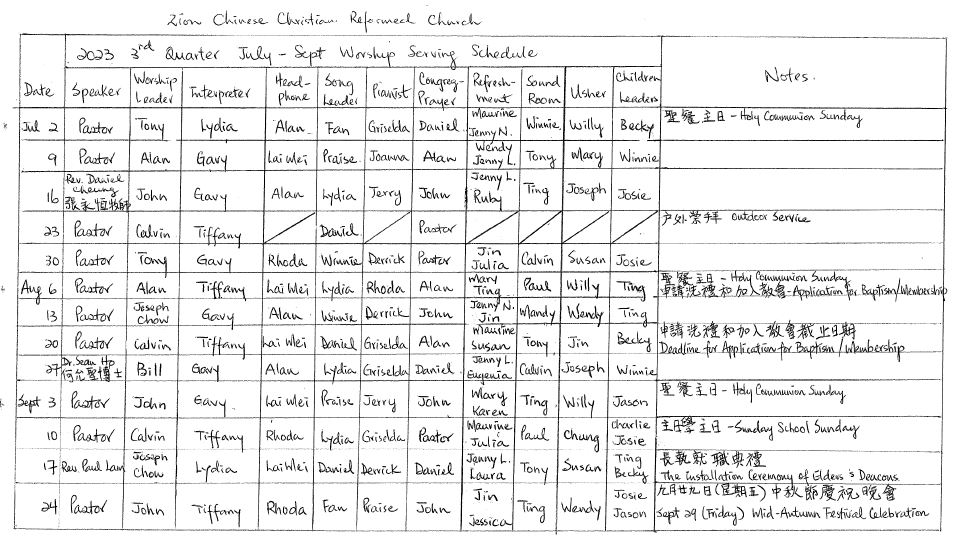 Zion Chinese Christian Reformed Church
2023 3rd Quarter July - Sept Worship Serving Schedule
Date Speaker Worship Leader Interpreter Head-phone Song Leader Pianist Congreg-Prayer Refresh-ment Sound Room Usher Children Leaders Notes.
Jul 2 Pastor Tony Lydia Alan Fan Griselda Daniel Maurine Jenny N. Winnie Willy Becky 聖餐主日 - Holy Communion Sunday
9 Pastor Alan Gavy Lai Wei Praise Joanna Alan Wendy Jenny L. Tony Mary Winnie
16 Rev. Daniel Cheung 張永恒牧師 John Gavy Alan Lydia Jerry John Jenny L. Ruby Ting Joseph Josie
23 Pastor Calvin Tiffany Daniel Pastor 户外崇拜 Outdoor Service
30 Pastor Tony Gavy Rhoda Winnie Derrick Pastor Jin Julia Calvin Susan Josie
Aug 6 Pastor Alan Tiffany Lai Wei Lydia Rhoda Alan Mary Ting Paul Willy Ting 聖餐主日 - Holy Communion Sunday 申請洗禮和加入教會 - Application for Baptism/Membership
13 Joseph Chow Gavy Alan Winnie Derrick John Jenny N. Jin Mandy Wendy Ting
20 Pastor Calvin Tiffany Lai Wei Daniel Griselda Alan Maurine Susan Tony Jin Becky 申請洗禮和加入教會截止日期 Deadline for Application for Baptism/Membership
27 Dr. Sean Ho 何允聖博士 Bill Gavy Alan Lydia Griselda Daniel Jenny L. Eugenia Calvin Joseph Winnie
Sept 3 Pastor John Gavy Lai Wei Praise Jerry John Mary Karen Ting Willy Jason 聖餐主日 - Holy Communion Sunday
10 Pastor Calvin Tiffany Rhoda Lydia Griselda Pastor Maurine Julia Paul Chung Charlie Josie 主日學主日 - Sunday School Sunday
17 Rev. Paul Lam Joseph Chow Lydia Lai Wei Daniel Derrick Daniel Jenny L. Laura Tony Susan Ting Becky 長執就職典禮 The Installation Ceremony of Elders & Deacons
24 Pastor John Tiffany Rhoda Fan Praise John Jin Jessica Ting Wendy Josie Jason 九月廿九日(星期五) 中秋節慶祝晚會 Sept 29 (Friday) Mid-Autumn Festival Celebration